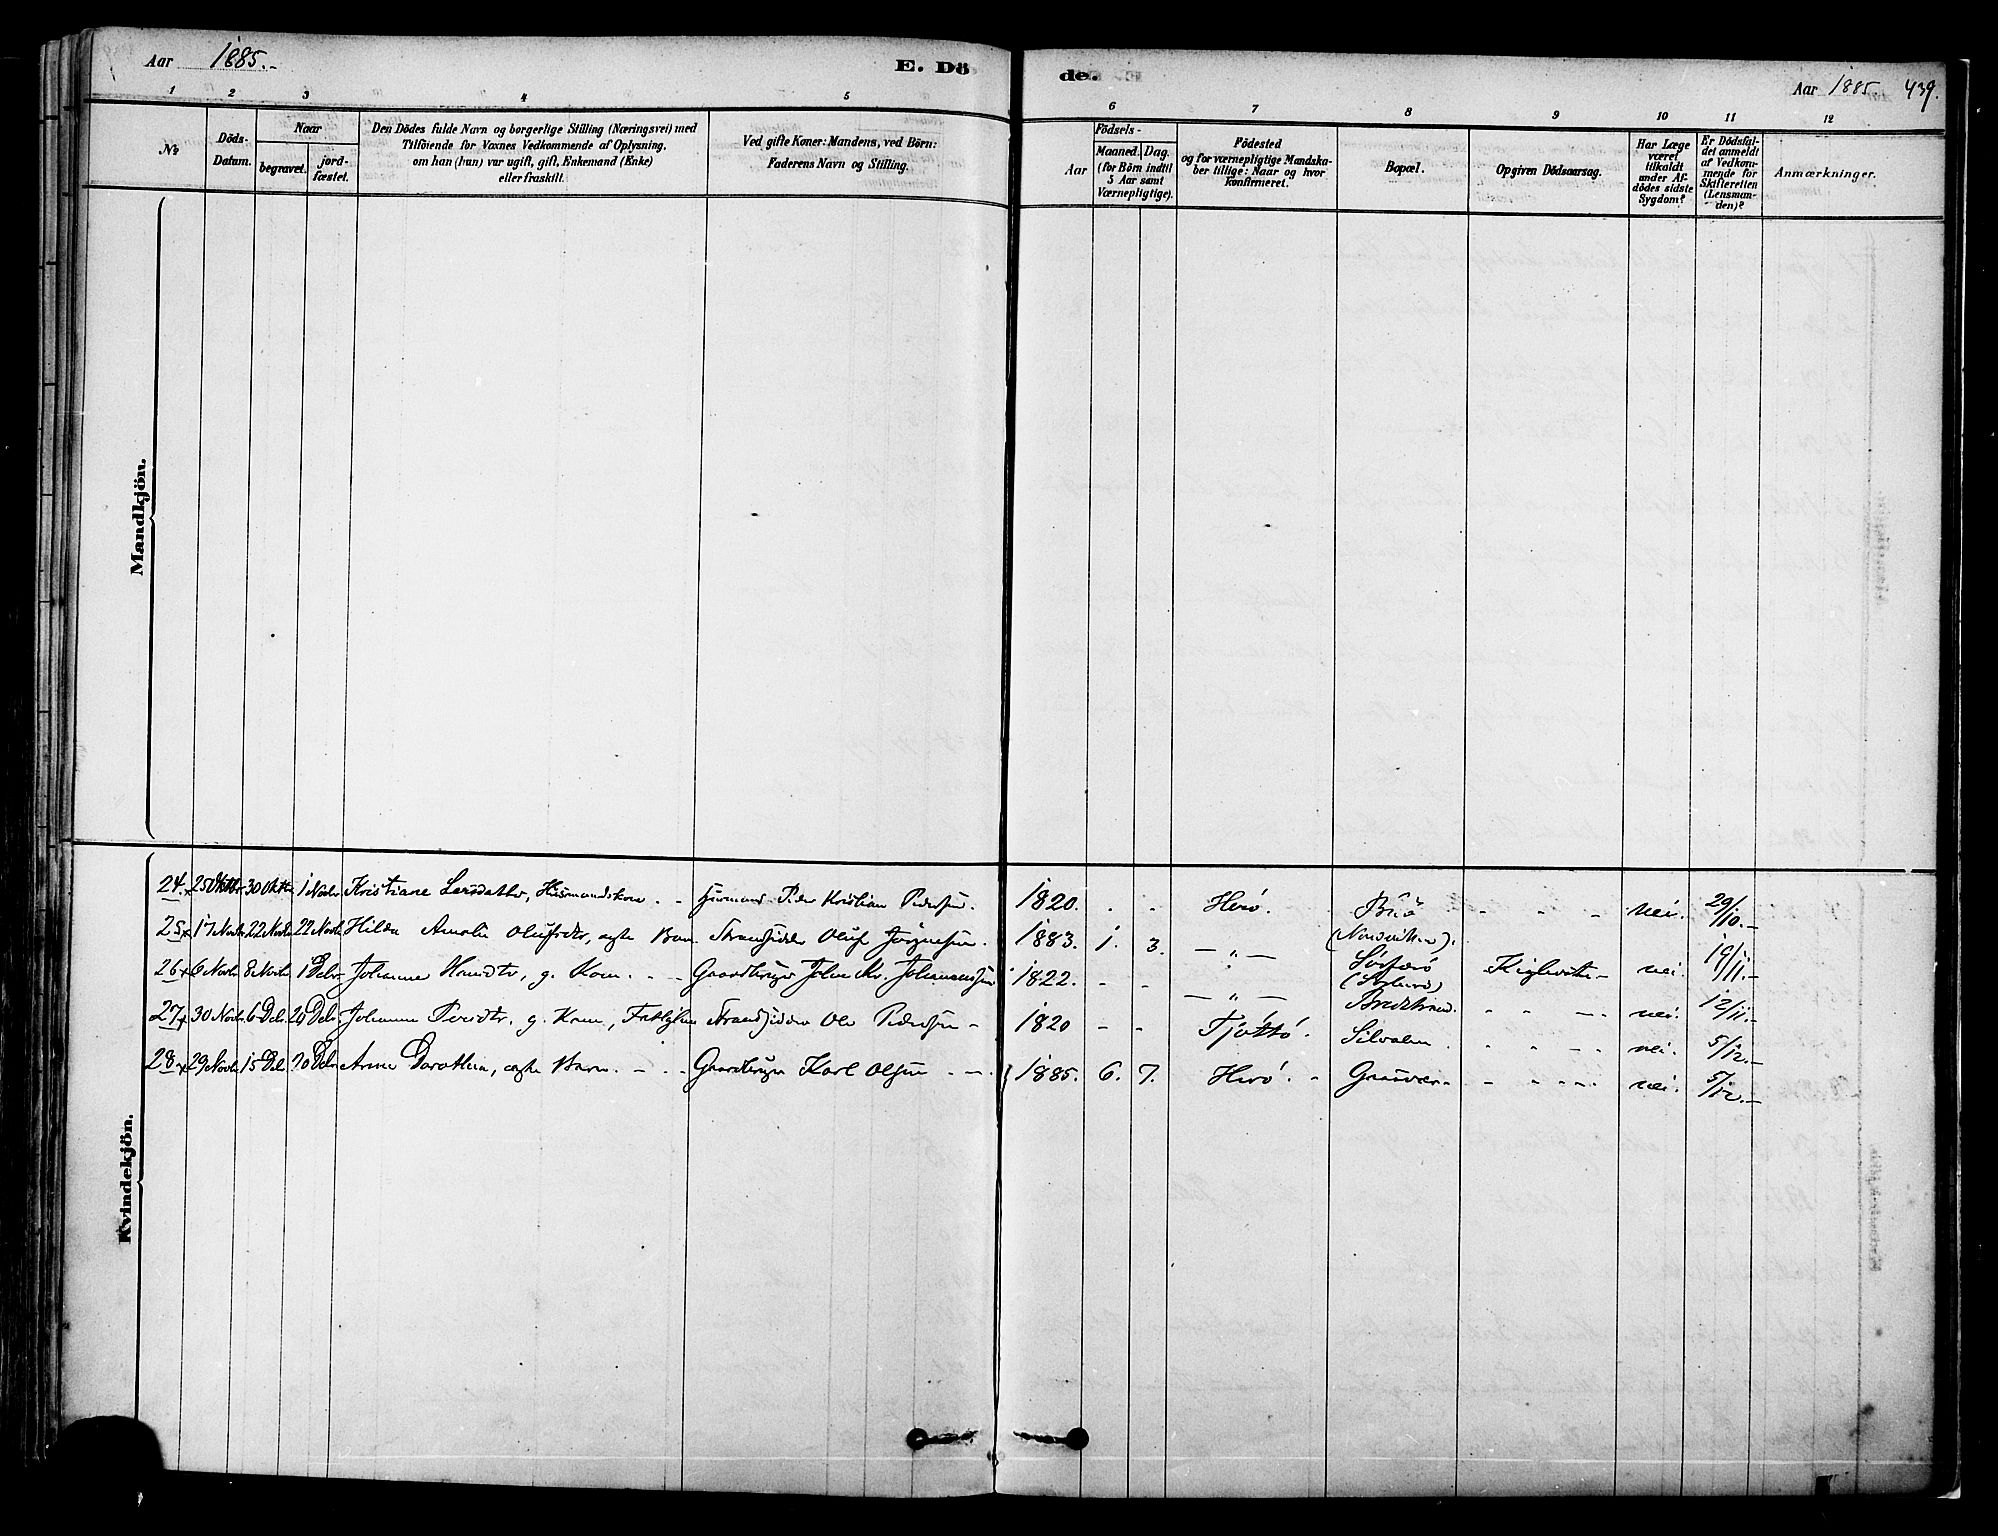 Aar 1885.
E. Dö
de.
Aar 1885. 439.
1 2 3 4 5 6 7 8 9 10 11 12
№
Döds-
Datum.
Naar
begravet.
jord-
fæstet.
Den Dödes fulde Navn og borgerlige Stilling (Næringsvei) med
Tilföiende for Voxnes Vedkommende af Oplysning,
om han (hun) var ugift, gift, Enkemand (Enke)
eller fraskilt.
Ved gifte Koner: Mandens, ved Börn:
Faderens Navn og Stilling.
Födsels-
Aar
Maaned.
Dag.
(for Börn indtil
5 Aar samt
Værnepligtige).
Födested
og for værnepligtige Mandska-
ber tillige: Naar og hvor
konfirmeret.
Bopæl.
Opgiven Dödsaarsag.
Har Læge
været
tilkaldt
under Af-
dödes sidste
Sygdom?
Er Dödsfal-
det anmeldt
af Vedkom-
mende for
Skifteretten
(Lensman-
den)?
Anmærkninger.
Mandkjön.
Kvindekjön.
24. 25 Oktbr 30 Oktbr 1 Novbr Kristiane Larsdatter, Husmandskone Husmand Peder Kristian Pedersen. 1820. Herö. Brö nei. 29/10.
25 17 Novbr 22 Novbr 22 Novbr Hilda Amalie Olufsdtr, ægte Barn Strandsidder Oluf 1883. 1. 3. — " — nei. 19/11.
26 6 Novbr 8 Novbr 1 Debr Johanne g. Kone. Gaardbruger John Kr. Johannessen 1822. — " — nei. 12/11.
27 30 Novbr 6 Debr 20 Debr Johanne g. Kone, Strandsidder Ole Pedersen 1820 Tjöttö. Silvalen nei. 5/12.
28 29 Novbr 15 Debr 20 Debr Anne Dorothea, ægte Barn. Gaardbruger Karl Olsen 1885. 6. 7. Herö. Gaasvær nei. 5/12.